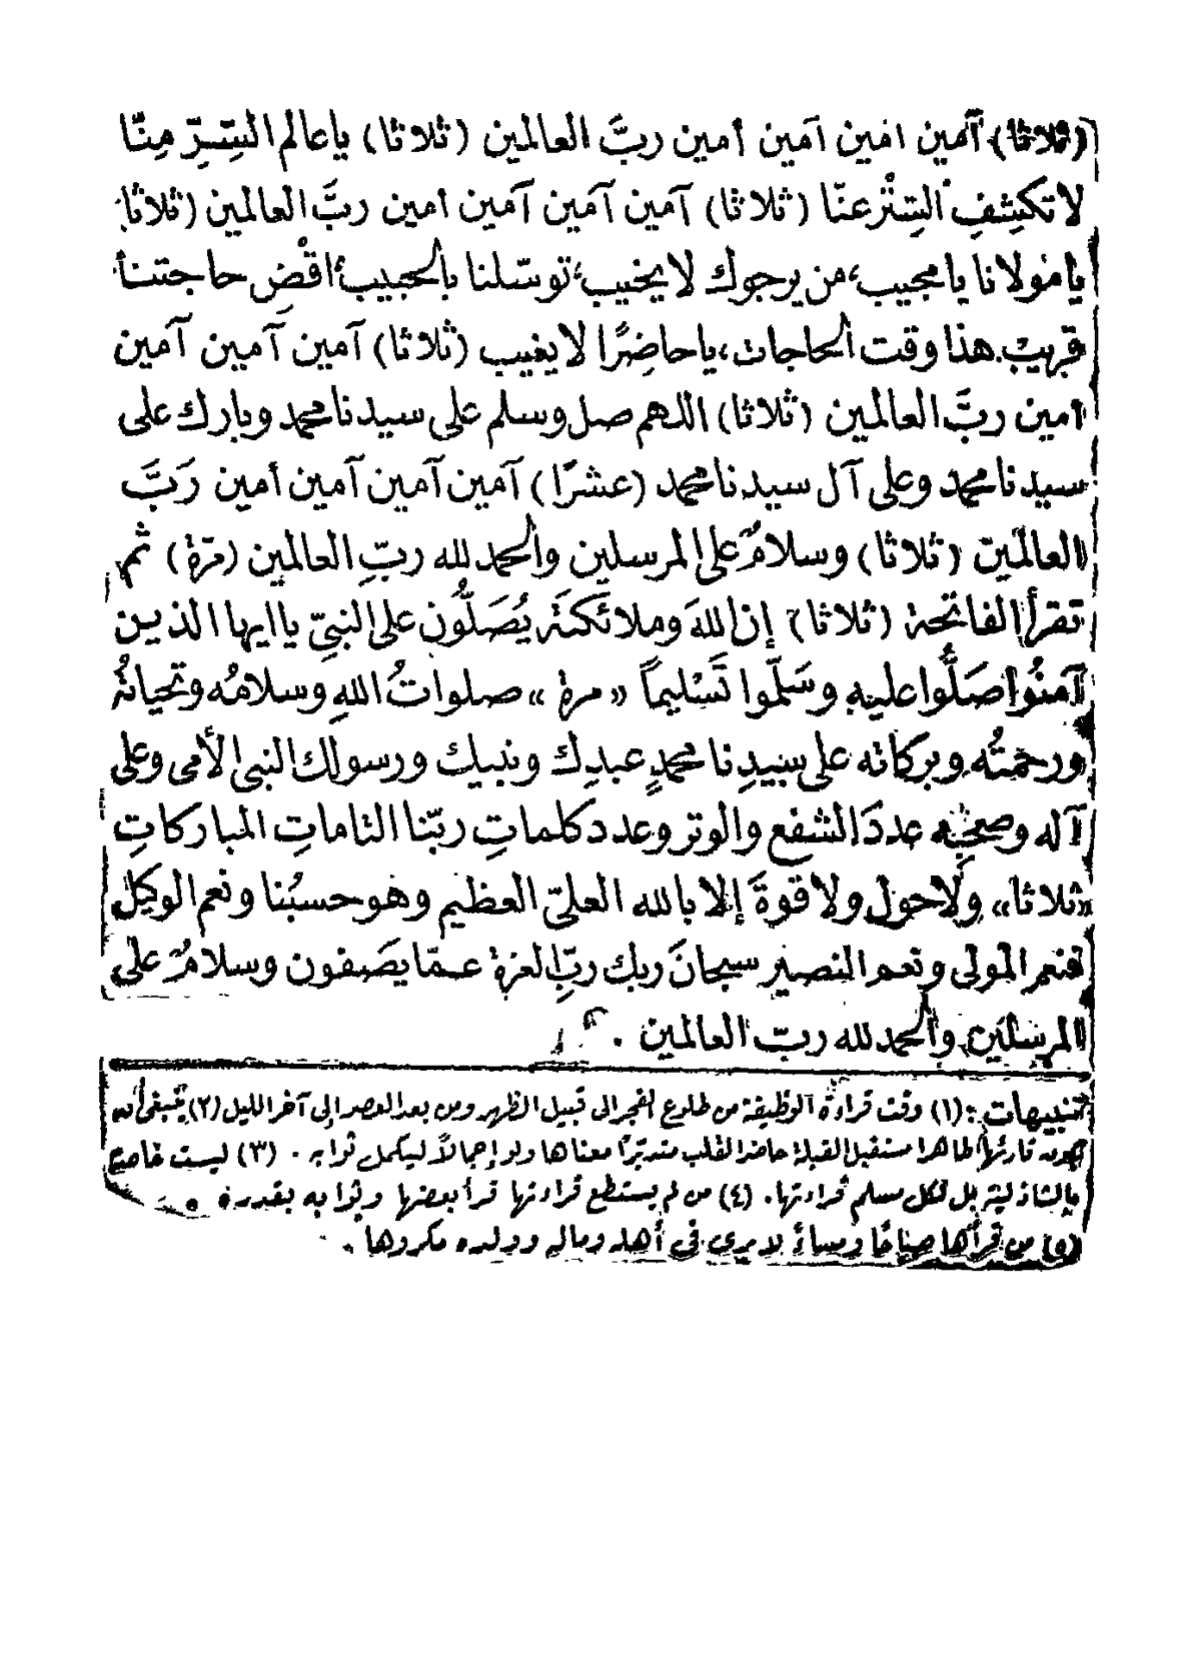 (ثلاثا) آمين امين آمين أمين ربَّ العالمين (ثلاثا) ياعالم السِّرِّ مِنّا
لا تكشِفِ السِتْرعنّا (ثلاثا) آمين آمين آمين امين ربَّ العالمين (ثلاثا)
يامولانا يا مجيب، من يرجوك لا يخيب، توسّلنا بالحبيب، اقْضِ حاجتنا
قريبْ. هذا وقت الحاجات، ياحاضِرًا لا يغيب (ثلاثا) آمين آمين آمين
امين ربَّ العالمين (ثلاثا) اللهم صل وسلم على سيدنا محمد وبارك على
سيدنا محمد وعلى آل سيدنا محمد (عشرًا) آمين آمين آمين أمين رَبَّ
العالمين (ثلاثا) وسلامٌ على المرسلين والحمد لله ربِّ العالمين (مرّة) ثم
تقرأ الفاتحة (ثلاثا) إن اللهَ وملائكتَه يُصَلُّون على النبيِّ ياايها الذين
آمنُوا صَلُّوا عليه وسَلّموا تَسْليماً «مرة» صلواتُ اللهِ وسلامُه وتحياتُه
ورحمتُه وبركاته على سيدِنا محمدٍ عبدِك ونبيك ورسولك النبي الأمى وعلى
آله وصحبِه عددَ الشفع والوتر وعدد كلماتِ ربّنا التاماتِ المباركاتِ
«ثلاثا» ولاحول ولا قوةَ إلا بالله العلىّ العظيم وهو حسبُنا ونعم الوكيل
فنعم المولى ونعم النصير سبحانَ ربك ربِّ العزة عمّا يصَفون وسلامٌ على
المرسلين والحمد لله ربّ العالمين .
تنبيهات : (١) وقت قراءة الوظيفة من طلوع الفجر الى قبيل الظهر ومن بعد العصر إلى آخر الليل (٢) ينبغى أن
يكون قارئها طاهرا مستقبل القبلة حاضر القلب متدبّرًا معناها ولو إجمالاً ليكمل ثوابه . (٣) ليست خاصة
بالشاذلية بل لكل مسلم قراءتها . (٤) من لم يستطع قراءتها قرأ بعضها وثوابه بقدره .
(٥) من قرأها صباحًا ومساءً لا يرى فى أهله وماله وولده مكروها .